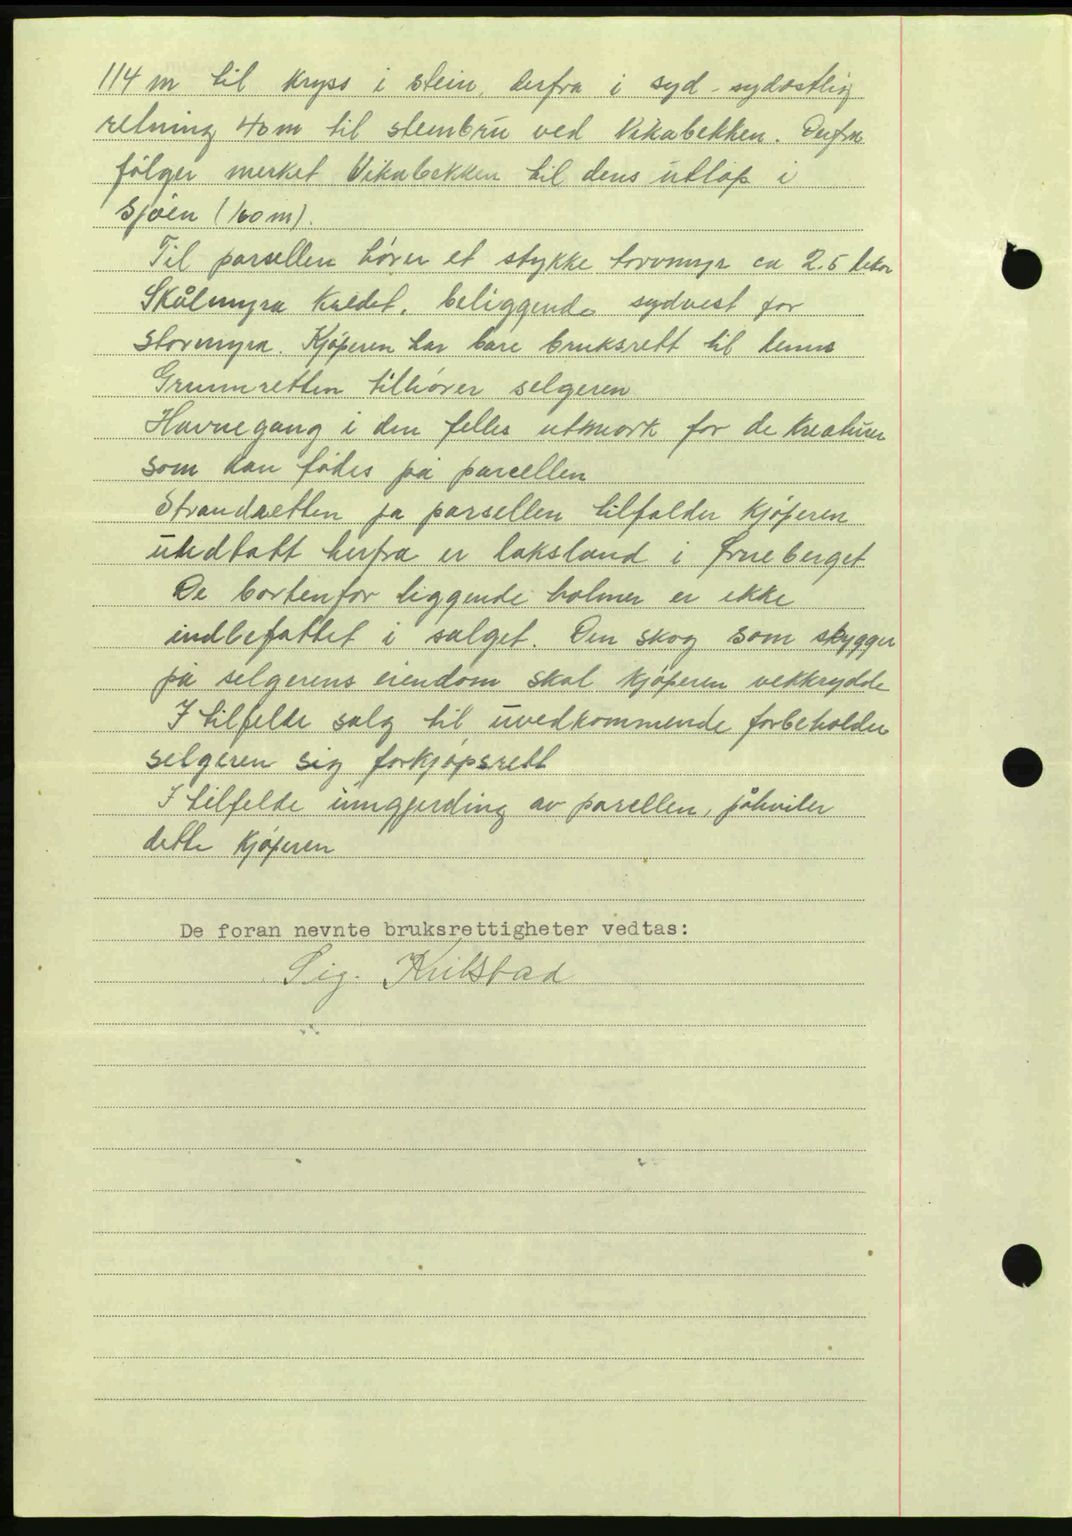 114 m til kryss i stein, derfra i syd-sydøstlig
retning 40 m til steinbru ved Vikabekken. Derfra
følger merket Vikabekken til dens utløp i
sjøen (160 m).
Til parsellen hører et stykke torvmyr ca 2.5 dekar
Skålmyra kaldet, beliggende sydvest for
Stormyra. Kjøperen har bare bruksrett til denne
Grunnretten tilhører selgeren
Havnegang i den felles utmark for de kreaturer
som kan fødes på parcellen
Strandretten på parsellen tilfalder kjøperen
undtatt herfra er laksland i Ørneberget
De bortenfor liggende holmer er ikke
indbefattet i salget. Den skog som skygger
på selgerens eiendom skal kjøperen vekkrydde
I tilfelde salg til uvedkommende forbeholder
selgeren sig forkjøpsrett
I tilfelde inngjerding av parellen, påhviler
dette kjøperen
De foran nevnte bruksrettigheter vedtas:
Sig.